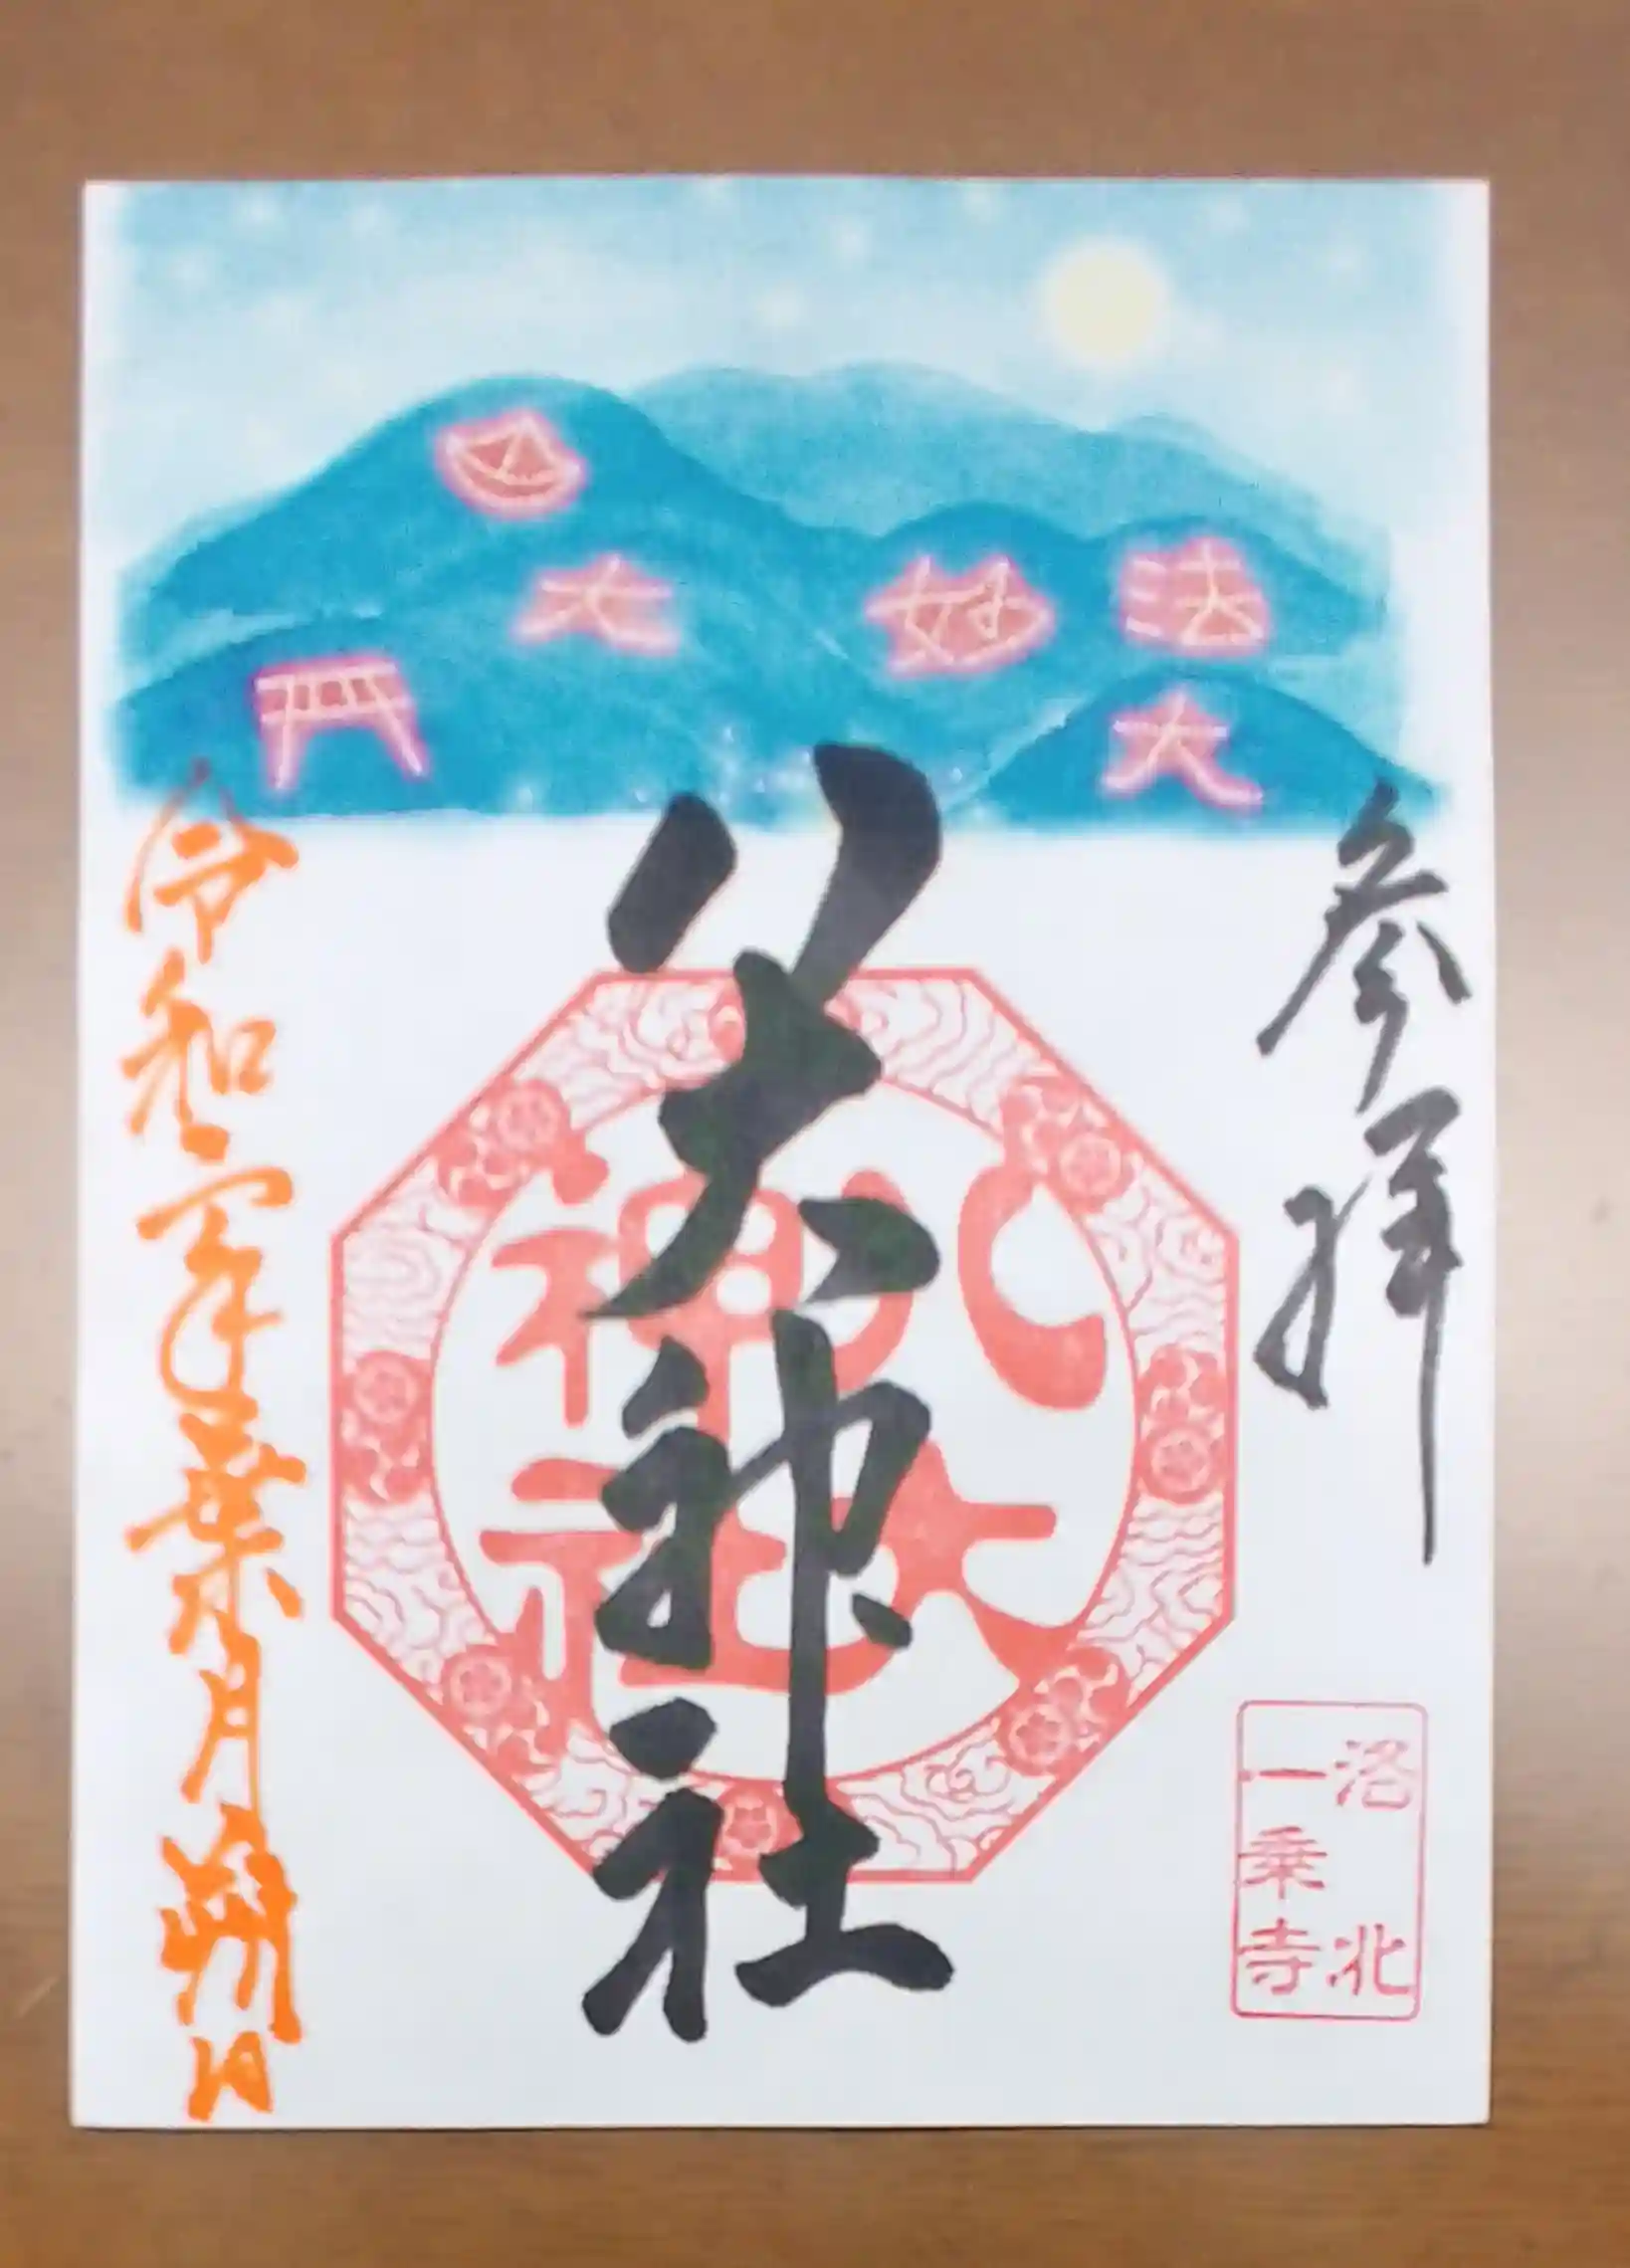 妙 法
大
大
参拝
八大神社
八大
神社
洛北
一乗寺
令和 年葉月朔日